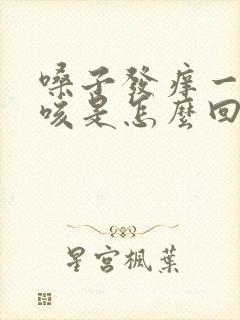 嗓子發癢一
咳是怎麼回
星宮楓葉